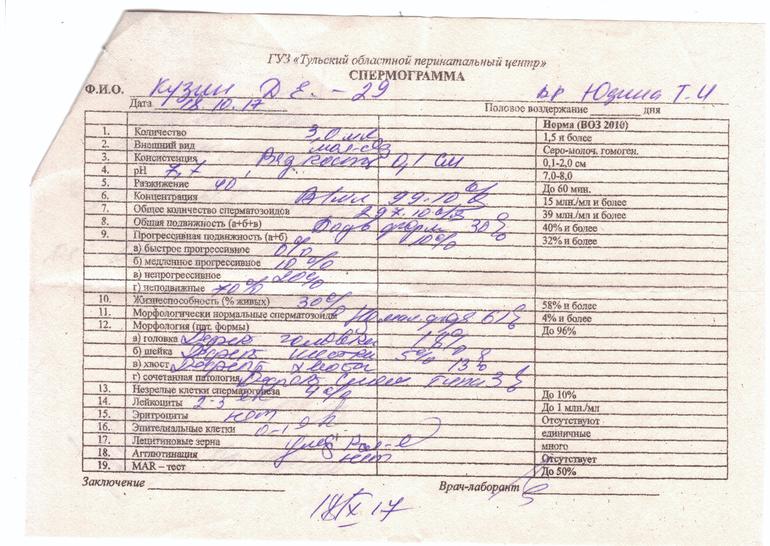 ГУЗ «Тульский областной перинатальный центр»
СПЕРМОГРАММА
Ф.И.О. Кузин Д Е. - 29 вр Юдина Т.И
Дата 18.10.17 Половое воздержание ______ дня
Норма (ВОЗ 2010)
1. Количество 3,0 мл 1,5 и более
2. Внешний вид Серо-молоч. гомоген.
3. Консистенция Вязкость 0,1 см 0,1-2,0 см
4. pH 7,7 7,0-8,0
5. Разжижение 40, До 60 мин.
6. Концентрация В 1 мл 99·10⁶ 15 млн./мл и более
7. Общее количество сперматозоидов 297·10⁶ 39 млн/мл и более
8. Общая подвижность (а+б+в) Подв форм 30% 40% и более
9. Прогрессивная подвижность (а+б) 10% 32% и более
а) быстрое прогрессивное 0%
б) медленное прогрессивное 10%
в) непрогрессивное 20%
г) неподвижные 70%
10. Жизнеспособность (% живых) 30% 58% и более
11. Морфологически нормальные сперматозоиды 61% 4% и более
12. Морфология (пат. формы) До 96%
а) головка головки 18%
б) шейка шейки 5%
в) хвост хвоста 13%
г) сочетанная патология 3%
13. Незрелые клетки сперматогенеза 4% До 10%
14. Лейкоциты 2-3 До 1 млн./мл
15. Эритроциты нет Отсутствуют
16. Эпителиальные клетки 0-1 единичные
17. Лецитиновые зерна много
18. Агглютинация нет Отсутствует
19. MAR – тест До 50%
Заключение ____________ Врач-лаборант ____________